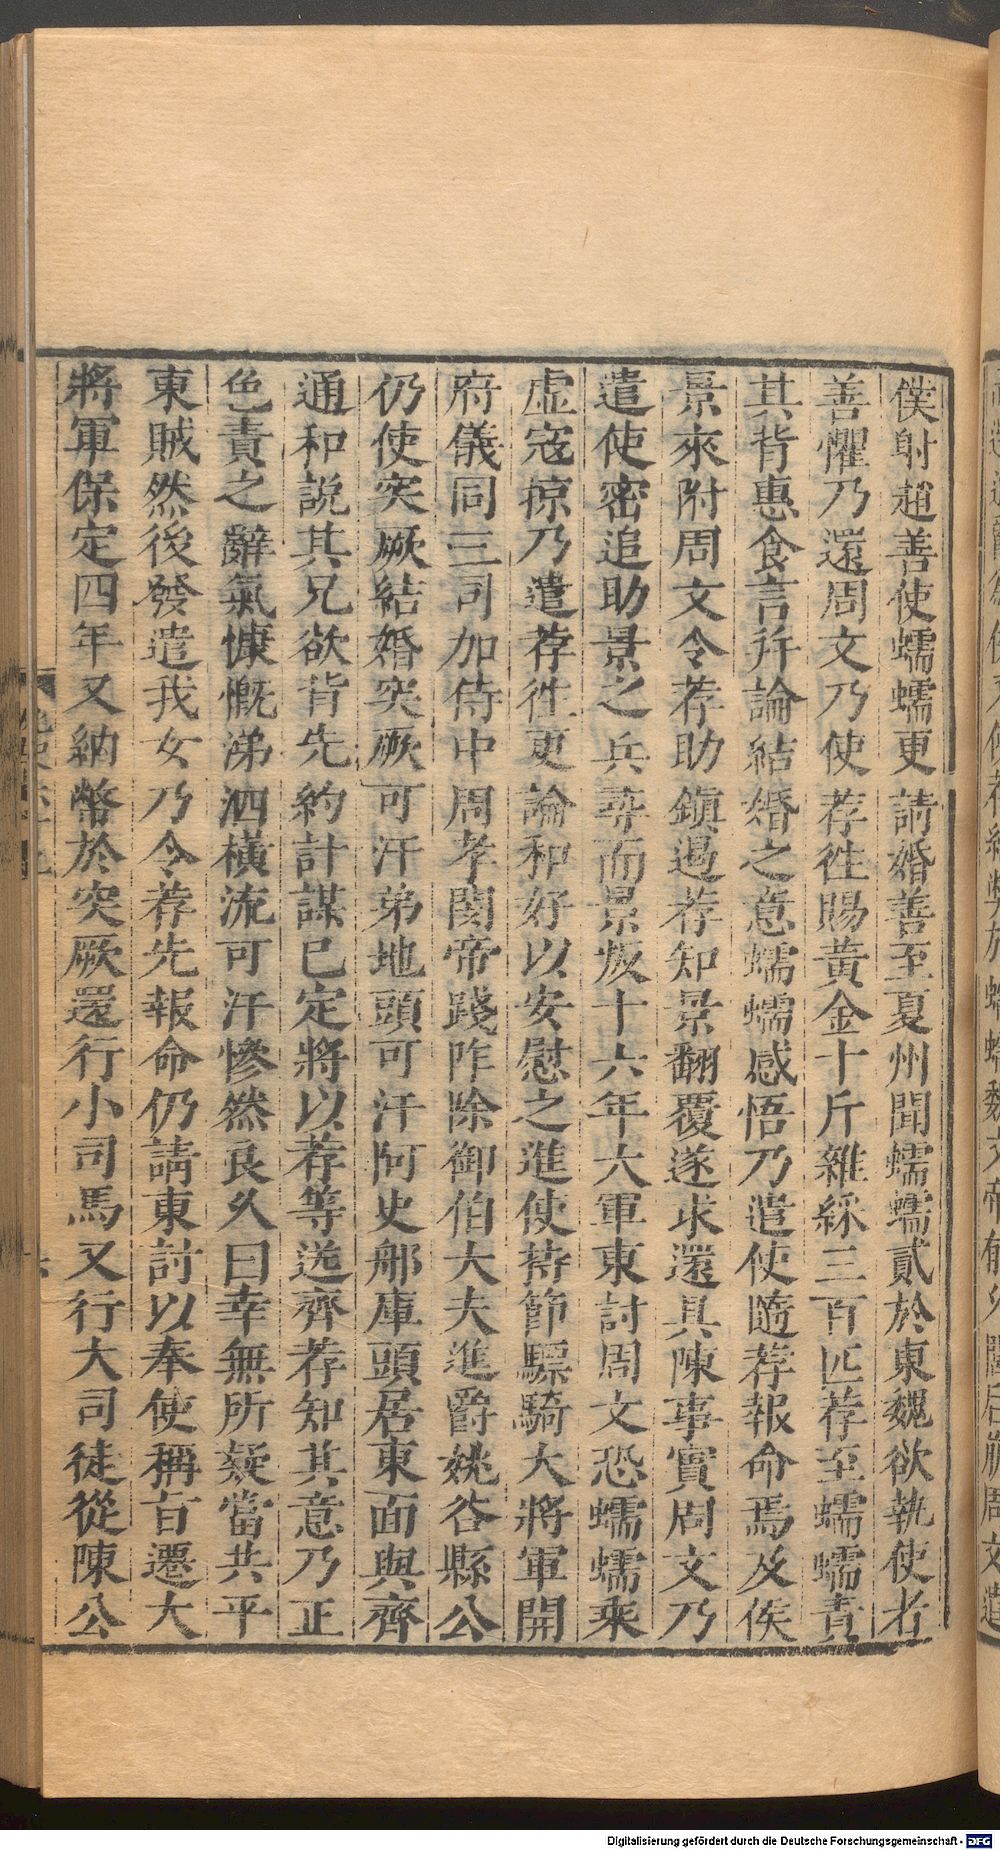 僕射趙善使蠕蠕更請婚善至夏州聞蠕蠕貳於東魏欲執使者
善懼乃還周文乃使荐徃賜黃金十斤雜綵三百匹荐至蠕蠕責
其背惠食言幷論結婚之意蠕蠕感悟乃遣使隨荐報命焉及侯
景來附周文令荐助鎭遏荐知景翻覆遂求還具陳事實周文乃
遣使密追助景之兵尋而景叛十六年大軍東討周文恐蠕蠕乘
虛寇掠乃遣荐徃更論和好以安慰之進使持節驃騎大將軍開
府儀同三司加侍中周孝閔帝踐阼除御伯大夫進爵姚谷縣公
仍使突厥結婚突厥可汗弟地頭可汗阿史那庫頭居東面與齊
通和說其兄欲背先約計謀已定將以荐等送齊荐知其意乃正
色責之辭氣慷慨涕泗橫流可汗慘然良久曰幸無所疑當共平
東賊然後發遣我女乃令荐先報命仍請東討以奉使稱旨遷大
將軍保定四年又納幣於突厥還行小司馬又行大司徒從陳公
Digitalisierung gefördert durch die Deutsche Forschungsgemeinschaft - DFG